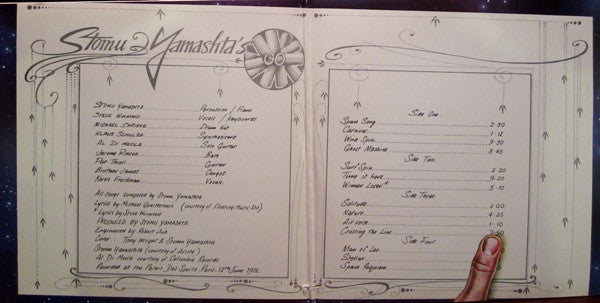 Stomu Yamashta's
GO
Stomu Yamashta Percussion / Piano
Steve Winwood Vocals / Keyboards
Michael Shrieve Drum Kit
Klaus Schulze Synthesizers
Al Di Meola Solo Guitar
Jerome Rimson Bass
Pat Thrall Guitar
Brother James Congas
Karen Friedman Vocals
All songs composed by Stomu Yamashta
Lyrics by Michael Quartermain (courtesy of Floating Music Ltd)
* Lyrics by Steve Winwood
Produced by Stomu Yamashta
Engineered by Robert Ash
Cover Tony Wright & Stomu Yamashta
Stomu Yamashta (courtesy of Arista)
Al Di Meola courtesy of Columbia Records
Recorded at the Palais Des Sports Paris 12th June 1976.
Side One.
Space Song 2.30
Carnival 1.12
Wind Spin 9.30
Ghost Machine 3.45
Side Two.
Surf Spin 2.20
Time is here 9.20
Winner Loser* 5.10
Side Three.
Solitude 2.00
Nature 4.25
Air voice 1.10
Crossing the Line 7.50
Side Four.
Man of Leo
Stellar
Space Requiem